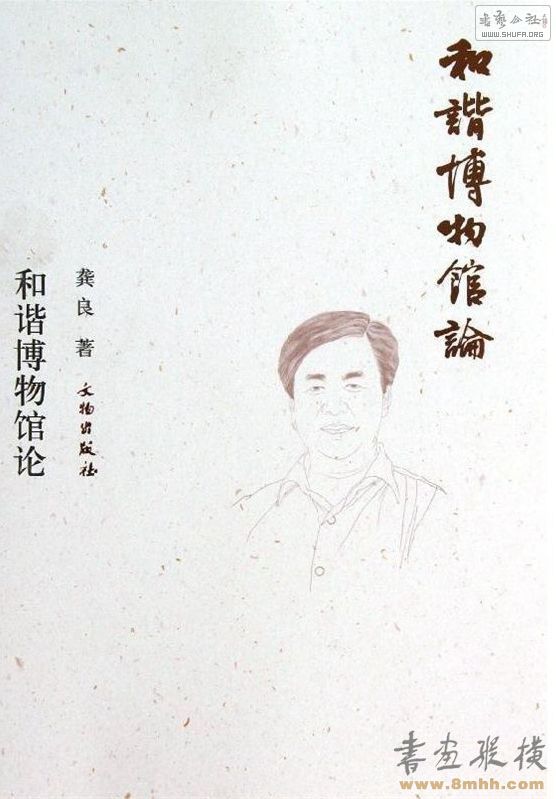 書藝公社
www.SHUFA.ORG
和諧博物館論
龚良 著
文物出版社
和谐博物馆论
書画縱横
www.8mhh.com